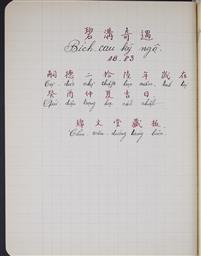 碧溝奇遇
Bích câu kỳ ngộ.
18.83
嗣德二拾陵年歲在
Tự đức nhị thập lục niên, tuế tại
癸酉仲夏吉日
Quí dậu trọng hạ cát nhật
錦文堂藏板
văn đường tàng bản.